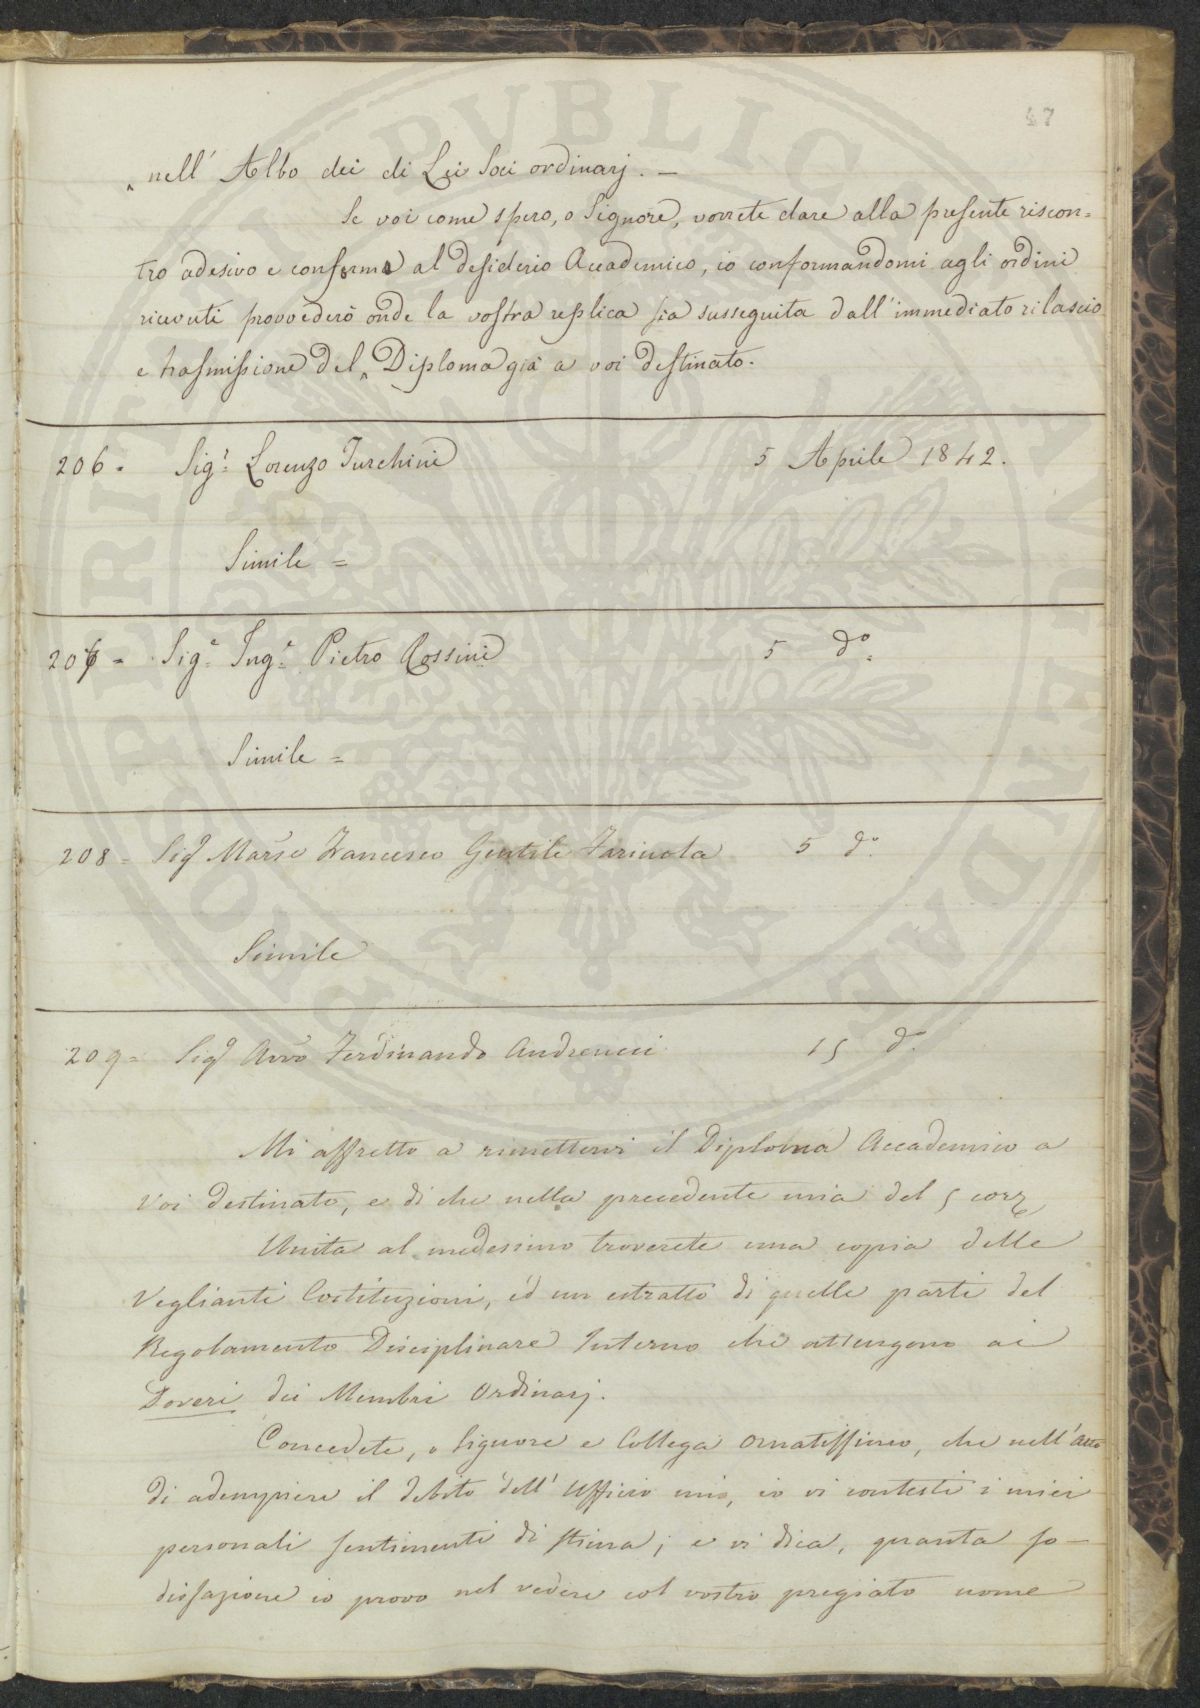 47
nell' Albo dei di Lei Soci ordinarj. —
Se voi come spero, o Signore, vorrete dare alla presente riscon=
tro adesivo e conforme al desiderio Accademico, io conformandomi agli ordini
ricevuti provvederò onde la vostra replica sia susseguita dall'immediato rilascio
e trasmissione del Diploma già a voi destinato.
206. Sigr. Lorenzo Turchini 5 Aprile 1842.
Simile =
207 = Sige. Inge. Pietro Rossini 5 do.
Simile =
208 = Sigr Marse Francesco Gentile Farinola 5 do.
Simile
209 = Sigr Avvo Ferdinando Andreucci 15 do.
Mi affretto a rimettervi il Diploma Accademico a
Voi destinato, e di che nella precedente mia del 5 corre
Unita al medesimo troverete una copia delle
Veglianti Costituzioni, ed un estratto di quelle parti del
Regolamento Disciplinare Interno che attengono ai
Doveri dei Membri Ordinarj.
Concedete, o Signore e Collega Ornatissimo, che nell'atto
di adempiere il debito dell'Uffizio mio, io vi contesti i miei
personali sentimenti di stima; e vi dica, quanta so-
disfazione io provo nel vedere col vostro pregiato nome
PROSPERITATI PUBLICAE AUGENDAE